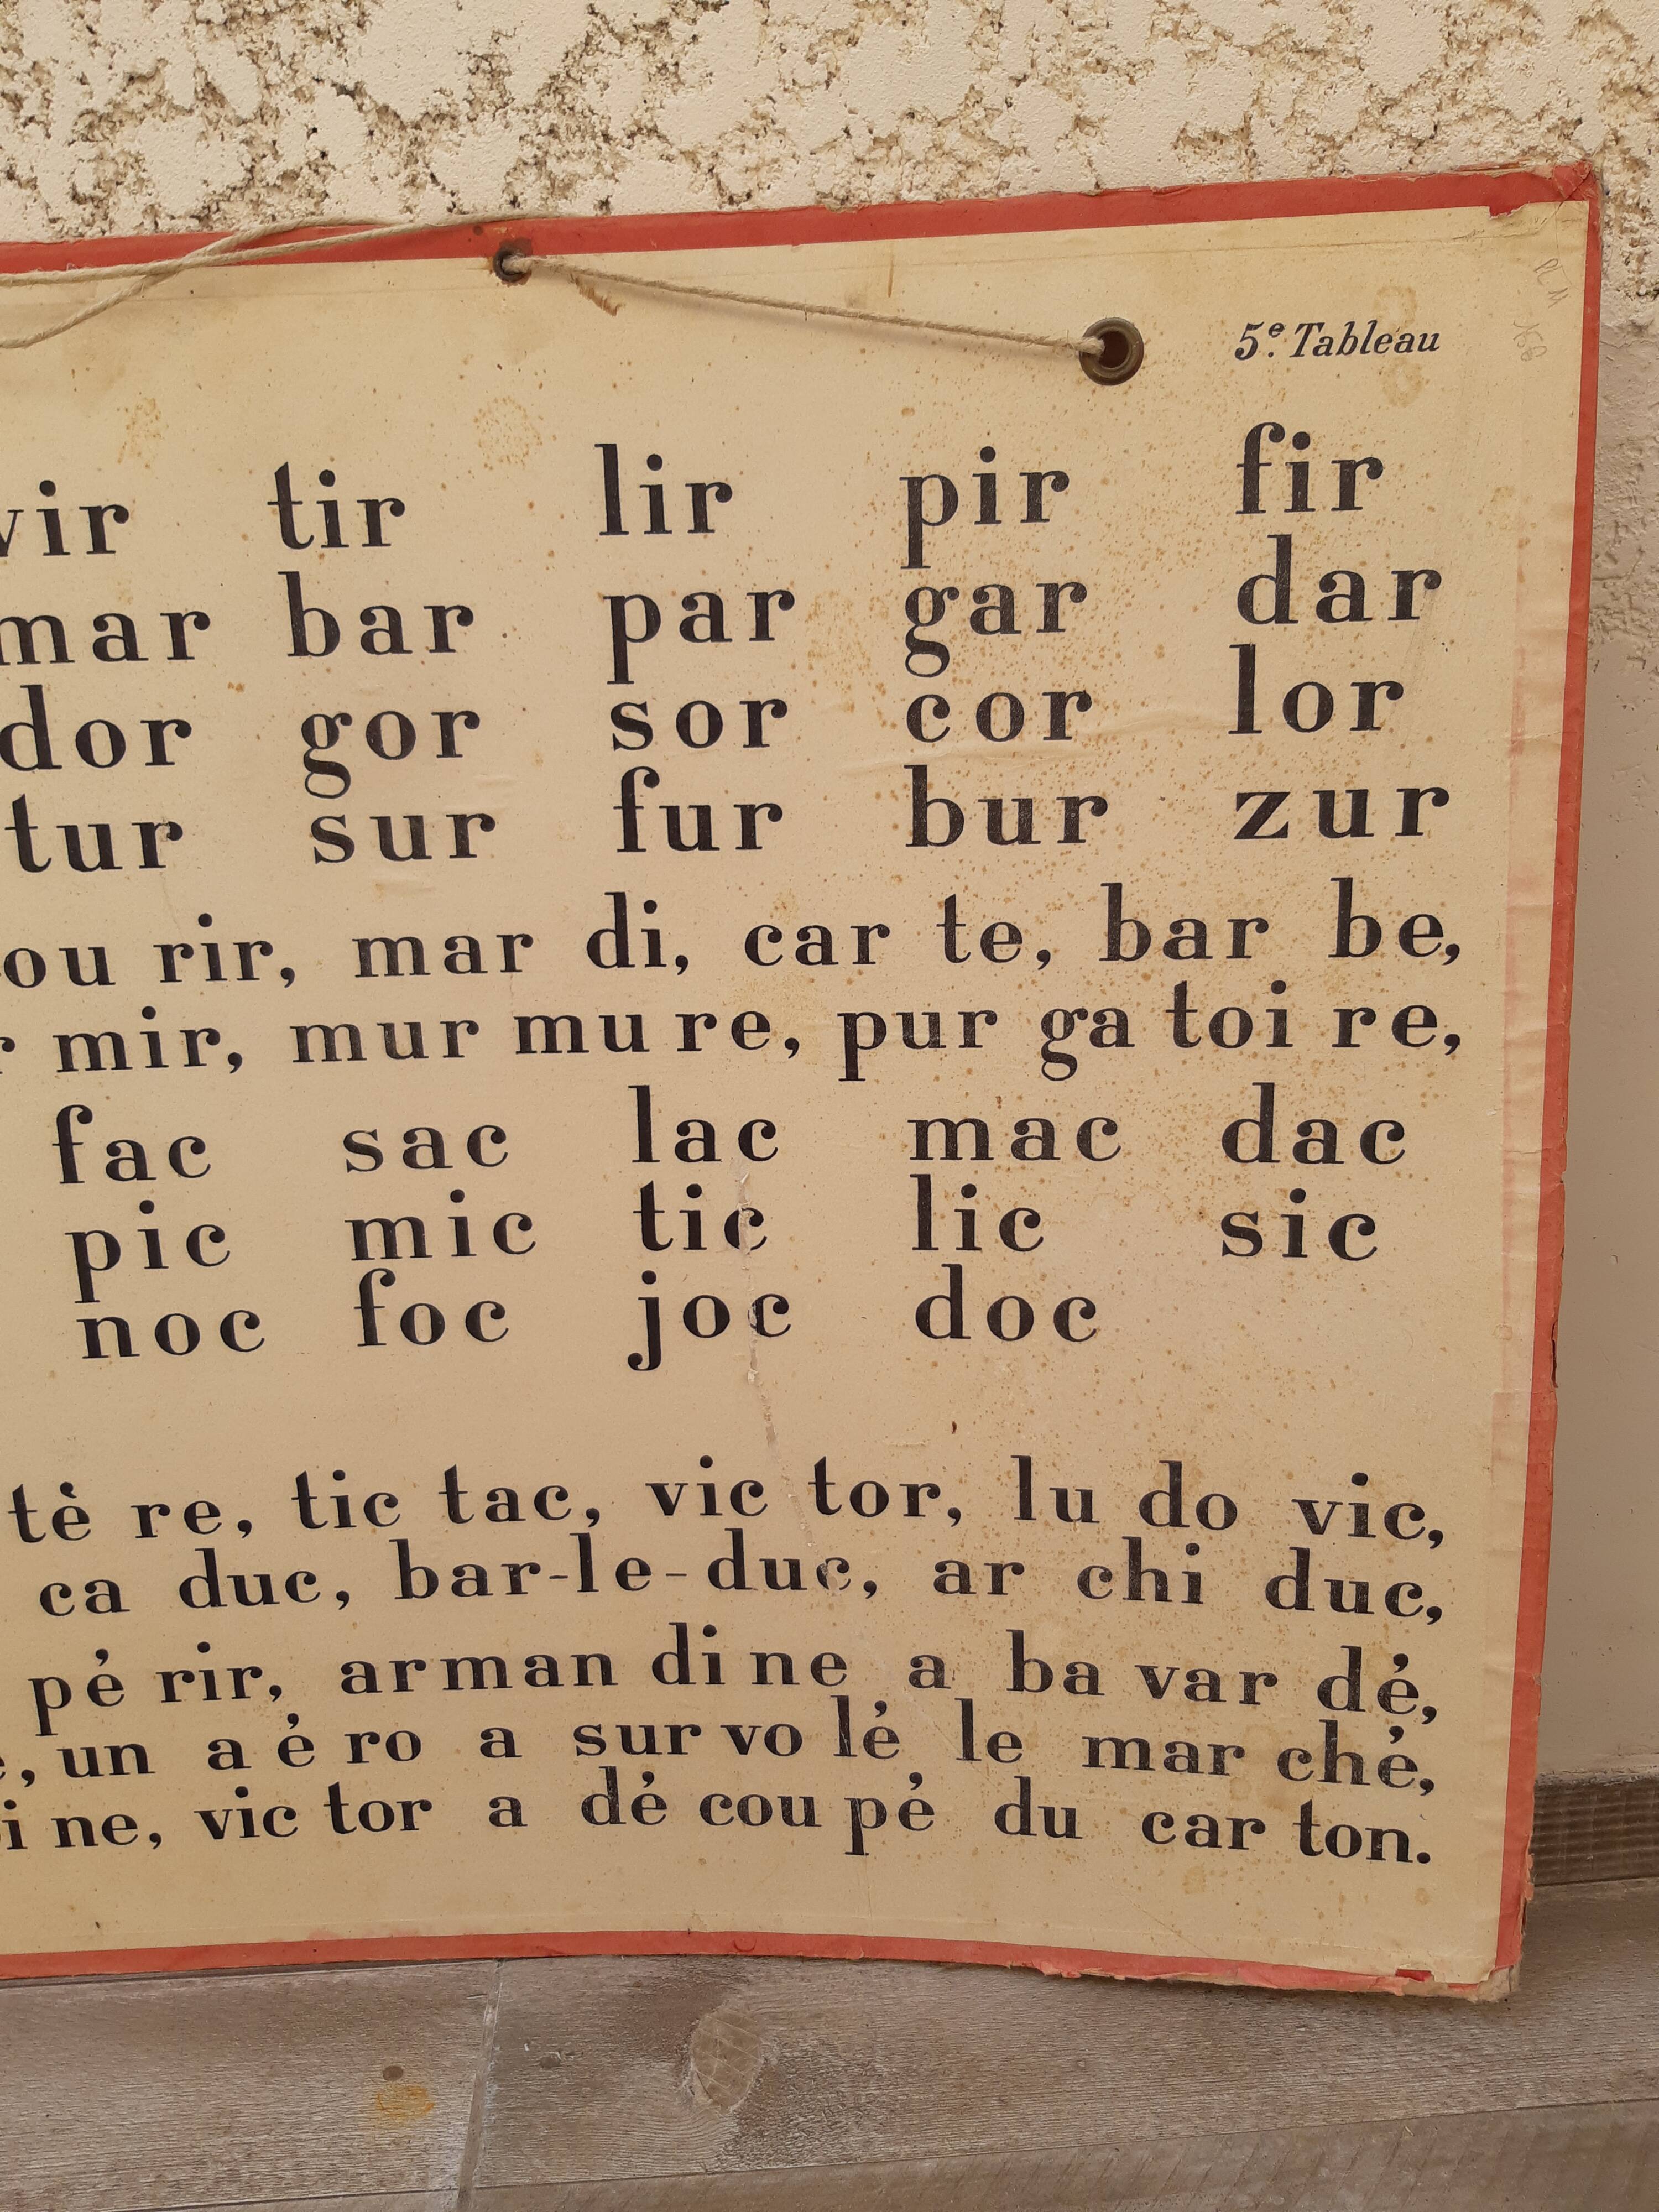 5e. Tableau
vir tir lir pir fir
mar bar par gar dar
dor gor sor cor lor
tur sur fur bur zur
ou rir, mar di, car te, bar be,
r mir, mur mu re, pur ga toi re,
fac sac lac mac dac
pic mic tic lic sic
noc foc joc doc
tè re, tic tac, vic tor, lu do vic,
ca duc, bar-le-duc, ar chi duc,
pé rir, ar man di ne a ba var dé,
e, un a é ro a sur vo lé le mar ché,
i ne, vic tor a dé cou pé du car ton.